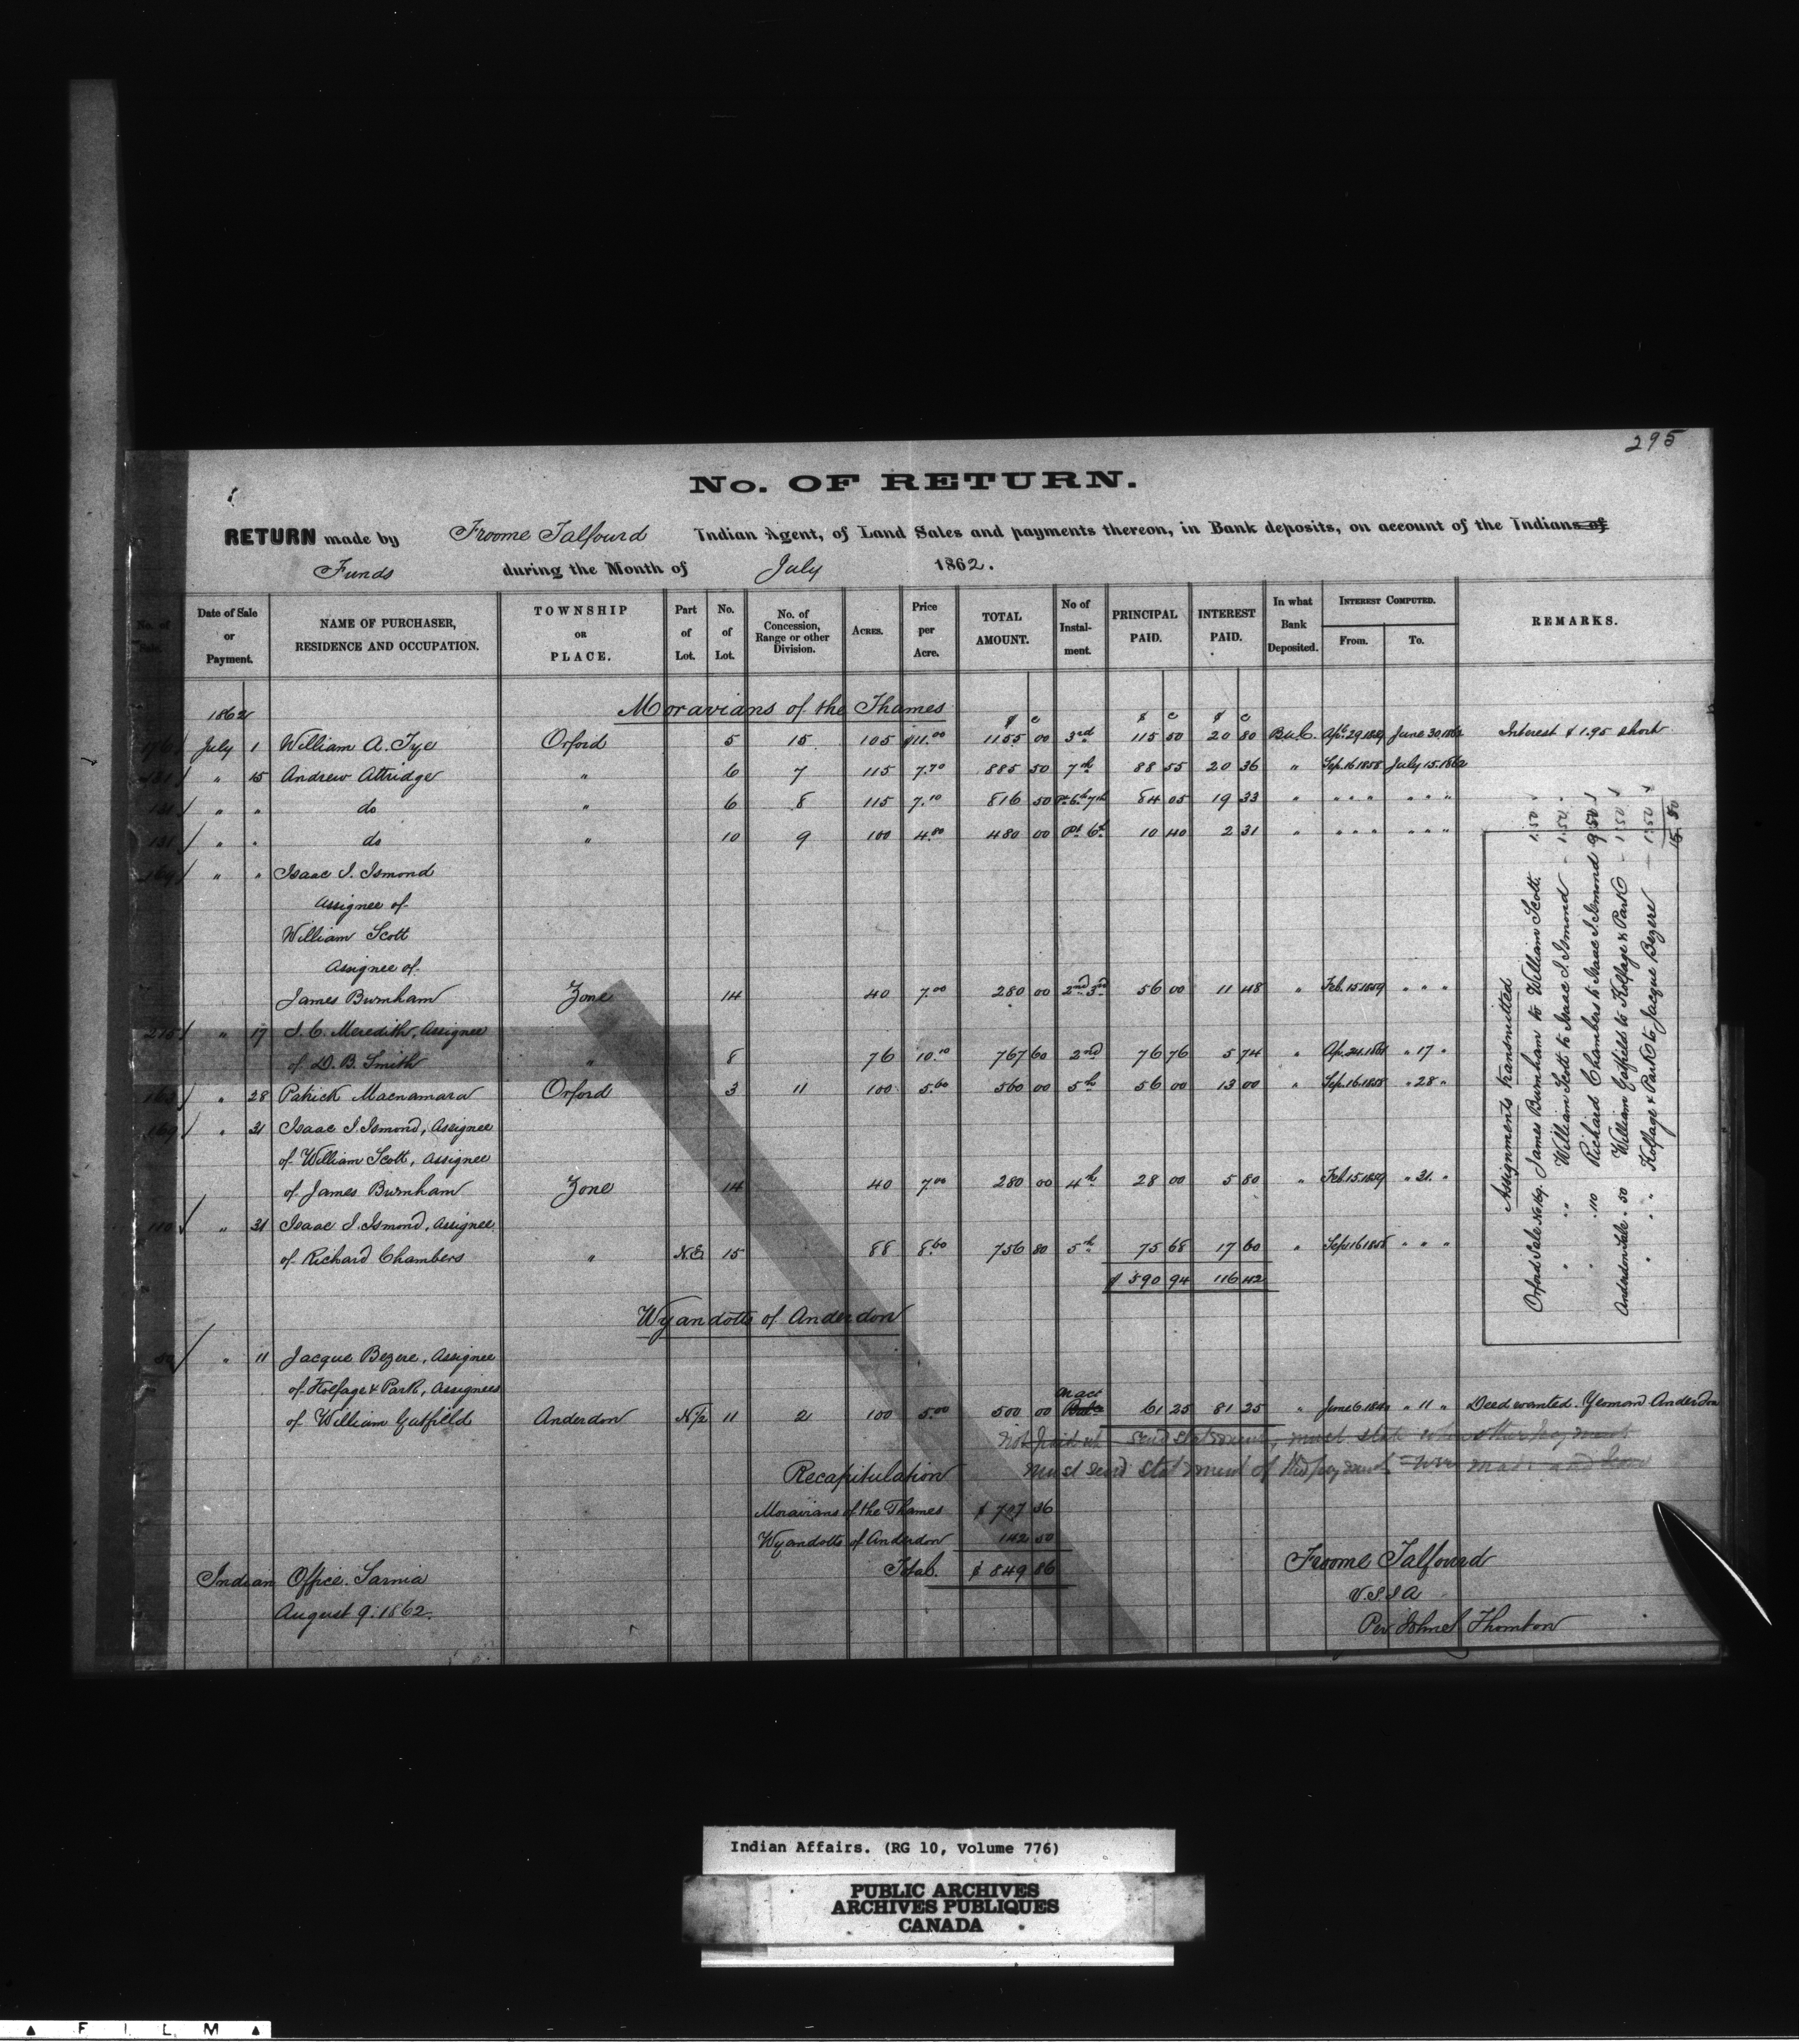 295
No. OF RETURN.
RETURN made by Froome Talfourd Indian Agent, of Land Sales and payments thereon, in Bank deposits, on account of the Indians of
Funds during the Month of July 1862.
No. of Sale. Date of Sale or Payment. NAME OF PURCHASER, RESIDENCE AND OCCUPATION. TOWNSHIP OR PLACE. Part of Lot. No. of Lot. No. of Concession, Range or other Division. ACRES. Price per Acre. TOTAL AMOUNT. No of Instalment. PRINCIPAL PAID. INTEREST PAID. In what Bank Deposited. INTEREST COMPUTED. From. To. REMARKS.
Moravians of the Thames
1862 $ c $ c $ c
176 July 1 William A. Tye Orford 5 15 105 $11.00 1155 00 3rd 115 50 20 80 B.U.C. Apl. 29.1859 June 30.1862 Interest $1.95 short
131 " 15 Andrew Attridge " 6 7 115 7.70 885 50 7th 88 55 20 36 " Sep. 16 1858 July 15.1862
" " do " 6 8 115 7.10 816 50 Pt 6th 7th 84 05 19 33 " " " " " " "
131 " " do " 10 9 100 4.80 480 00 Pt 6th 10 40 2 31 " " " " " " "
169 " " Isaac I. Ismond
Assignee of
William Scott
Assignee of
James Burnham Zone 14 40 7.00 280 00 2nd 3rd 56 00 11 48 " Feb. 15.1859 " " "
275 " 17 J. C. Meredith, Assignee
of D. B. Smith " 8 76 10.10 767 60 2nd 76 76 5 74 " Ap. 24.1861 " 17 "
163 " 28 Patrick Macnamara Orford 3 11 100 5.60 560 00 5th 56 00 13 00 " Sep. 16.1858 " 28 "
169 " 31 Isaac I. Ismond, Assignee
of William Scott, Assignee
of James Burnham Zone 14 40 7.00 280 00 4th 28 00 5 80 " Feb. 15.1859 " 31. "
110 " 31 Isaac I. Ismond, Assignee
of Richard Chambers " N.E. 15 88 8.60 756 80 5th 75 68 17 60 " Sep. 16 1858 " " "
$ 590 94 116 42
Wyandotts of Anderdon
50 " 11 Jacque Bezere, Assignee
of Kolfage & Park, Assignees
of William Gatfield Anderdon N½ 11 2 100 5.00 500 00 on act 61 25 81 25 " June 6. " 11 " Deed wanted. Yeoman Anderdon
must send statement of this payment were made and how
Recapitulation
Moravians of the Thames $ 707 36
Wyandotts of Anderdon 142 50
Total. $ 849 86
Indian Office. Sarnia
August 9. 1862.
Froome Talfourd
V.S.I.A
Per John Thornton
Assignments transmitted
Orford Sale No 169. James Burnham to William Scott. 1.50
" " " William Scott to Isaac I. Ismond - 1.50
" " 110 Richard Chambers to Isaac I. Ismond 9.50
Anderdon Sale . 50 William Gatfield to Kolfage & Park - 1.50
" " " Kolfage & Park to Jacque Bezere - 1.50
15.50
Indian Affairs. (RG 10, Volume 776)
PUBLIC ARCHIVES
ARCHIVES PUBLIQUES
CANADA
FILM